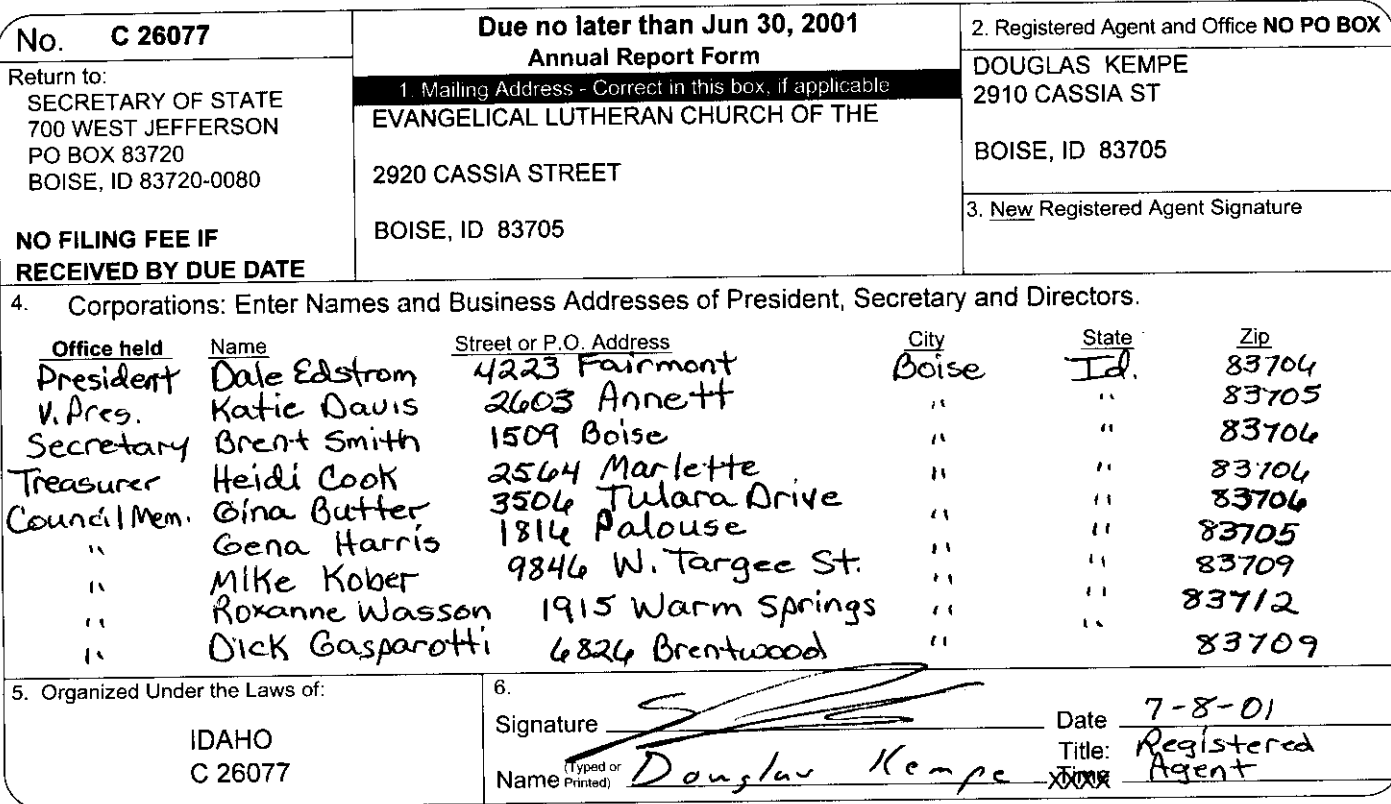 No. C 26077
Return to:
SECRETARY OF STATE
700 WEST JEFFERSON
PO BOX 83720
BOISE, ID 83720-0080
NO FILING FEE IF
RECEIVED BY DUE DATE
Due no later than Jun 30, 2001
Annual Report Form
1. Mailing Address - Correct in this box, if applicable
EVANGELICAL LUTHERAN CHURCH OF THE
2920 CASSIA STREET
BOISE, ID 83705
2. Registered Agent and Office NO PO BOX
DOUGLAS KEMPE
2910 CASSIA ST
BOISE, ID 83705
3. New Registered Agent Signature
4. Corporations: Enter Names and Business Addresses of President, Secretary and Directors.
Office held Name Street or P.O. Address City State Zip
President Dale Edstrom 4223 Fairmont Boise Id. 83706
V. Pres. Katie Davis 2603 Annett " " 83705
Secretary Brent Smith 1509 Boise " " 83706
Treasurer Heidi Cook 2564 Marlette " " 83706
Council Mem. Gina Butter 3506 Tulara Drive " " 83706
" Gena Harris 1816 Palouse " " 83705
" Mike Kober 9846 W. Targee St. " " 83709
" Roxanne Wasson 1915 Warm Springs " " 83712
" Dick Gasparotti 6826 Brentwood " " 83709
5. Organized Under the Laws of:
IDAHO
C 26077
6.
Signature Date 7-8-01
Name (Typed or Printed) Douglas Kempe Title: Registered Agent